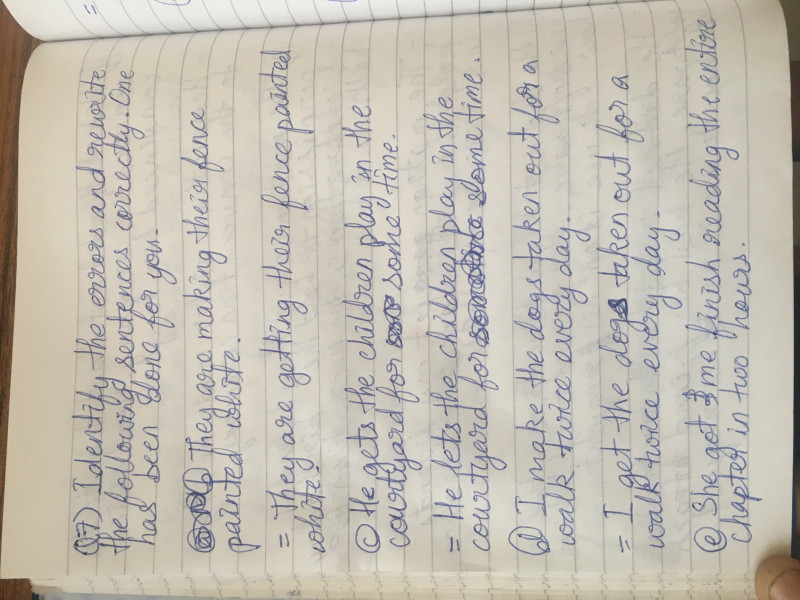 Q-7) Identify the errors and rewrite
the following sentences correctly. One
has been done for you.
b) They are making their fence
painted white.
= They are getting their fence painted
white.
c) He gets the children play in the
courtyard for some time.
= He lets the children play in the
courtyard for some time.
d) I make the dogs taken out for a
walk twice every day.
= I get the dogs taken out for a
walk twice every day.
e) She got me finish reading the entire
chapter in two hours.